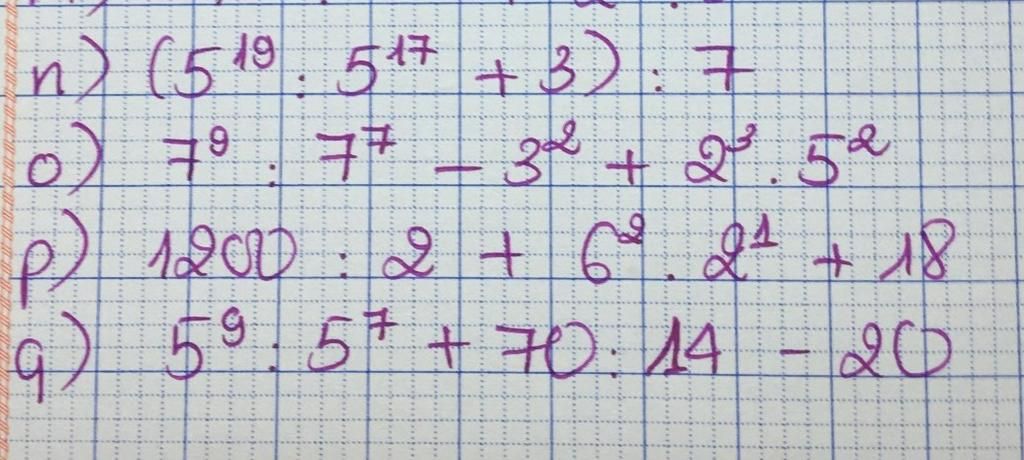 n) (5¹⁹ : 5¹⁷ + 3) : 7
o) 7⁹ : 7⁷ - 3² + 2³ . 5²
p) 1200 : 2 + 6² . 2¹ + 18
q) 5⁹ : 5⁷ + 70 : 14 - 20